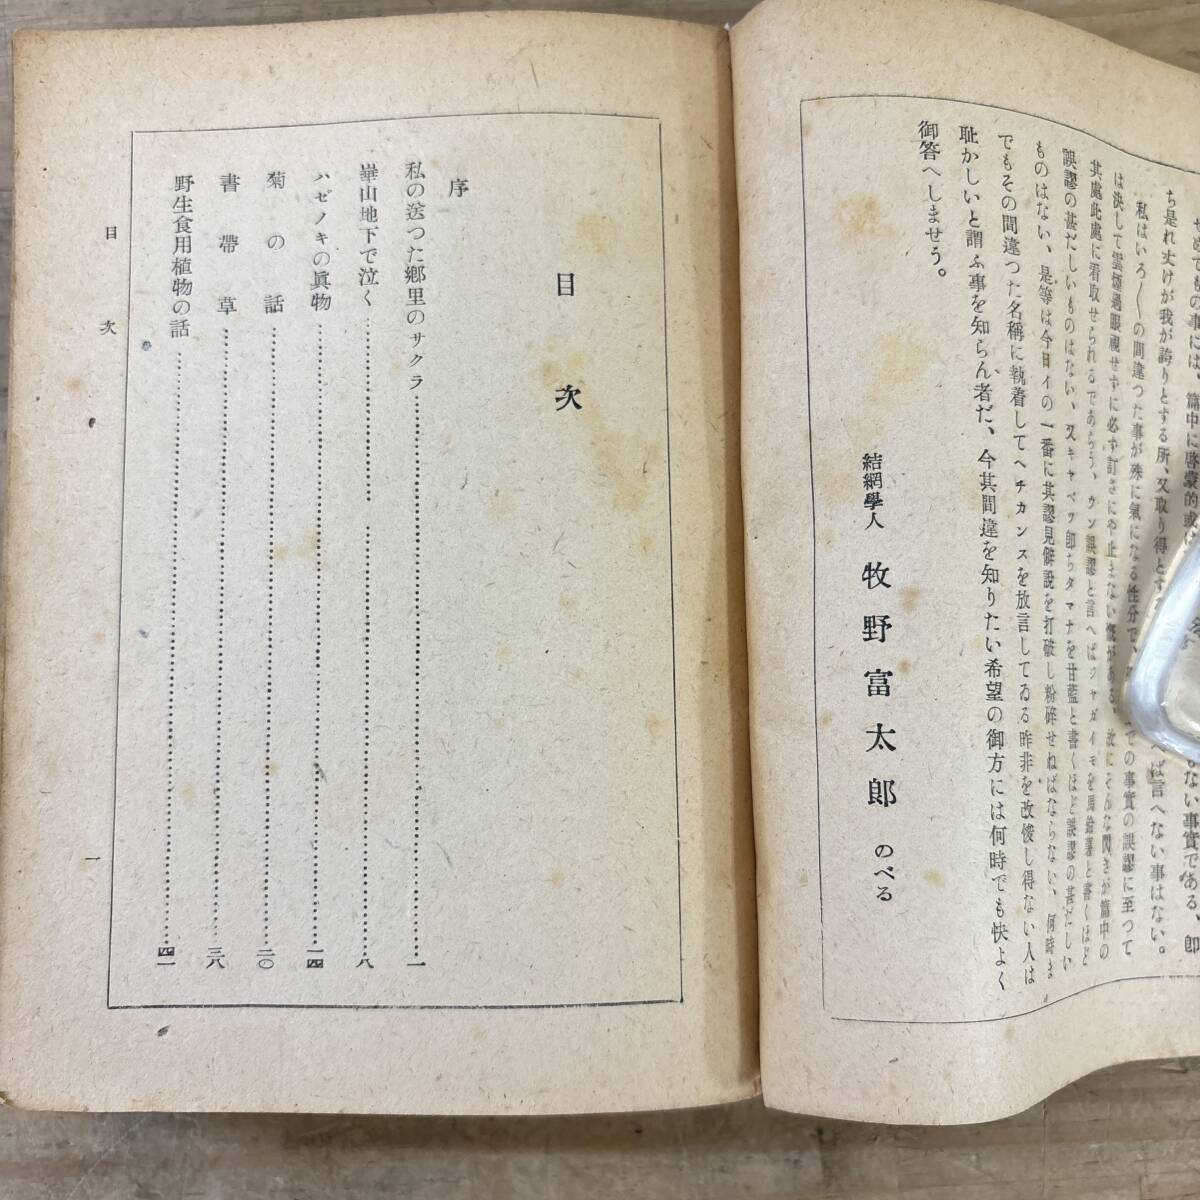 せめてもの事には、篇中に啓蒙的或は
ない事實である、卽
ち是れ丈けが我が誇りとする所、又取り得とする
ば言へない事はない。
私はいろ〱の間違つた事が殊に氣になる性分で、
での事實の誤謬に至つて
は決して雲煙過眼視せずに必ず訂さにや止まない慨がある、故にそんな閃きが篇中の
其處此處に看取せられるであらう、ウン誤認と言へばジャガイモを馬鈴薯と書くほど
誤謬の甚だしいものはない、又キャベツ卽ちタマナを甘藍と書くほど誤認の甚だしい
ものはない、是等は今日イの一番に其認見僻說を打破し粉碎せねばならない、何時ま
でもその間違つた名稱に執着してヘチカンスを放言してゐる昨非を改悛し得ない人は
耻かしいと謂ふ事を知らん者だ、今其間違を知りたい希望の御方には何時でも快よく
御答へしませう。
結網學人 牧野富太郎 のべる
目次
序
私の送つた鄕里のサクラ……一
崋山地下で泣く……八
ハゼノキの眞物……一四
菊の話……二〇
書帶草……三八
野生食用植物の話……四一
目次
一